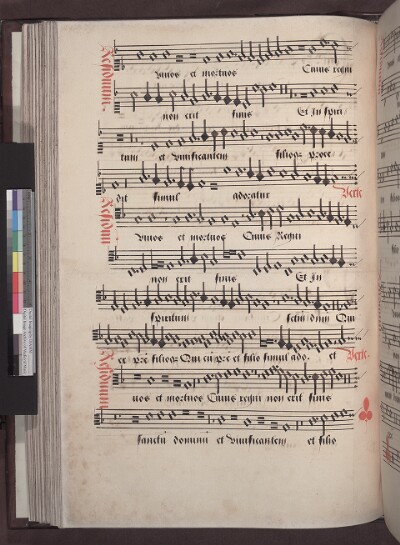 Residuum
vivos et mortuos Cuius regni
non erit finis Et in spiri
tum et vivificantem filioq; proce
dit simul adoratur Verte
Residuum
vivos et mortuos Cuius Regni
non erit finis Et in
spiritum dnm Qui
et filioq; Qui cu pre et filio simul ado. et Verte.
Residuum
uos et mortuos Cuius regni non erit finis
sanctu dominu et vivificantem et filio